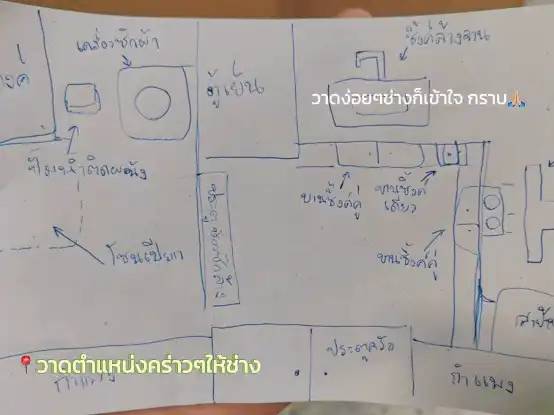 เครื่องซักผ้า
ซิ้งค์ล้างจาน
ตู้เย็น
วาดง่อยๆช่างก็เข้าใจ กราบ🙏🏻
ปั๊มน้ำติดผนัง
บานซิ้งค์คู่
บานซิ้งค์
เดี่ยว
โซนเปียก
บานซิ้งค์คู่
📍วาดตำแหน่งคร่าวๆให้ช่าง
ประตูครัว
กำแพง
กำแพง